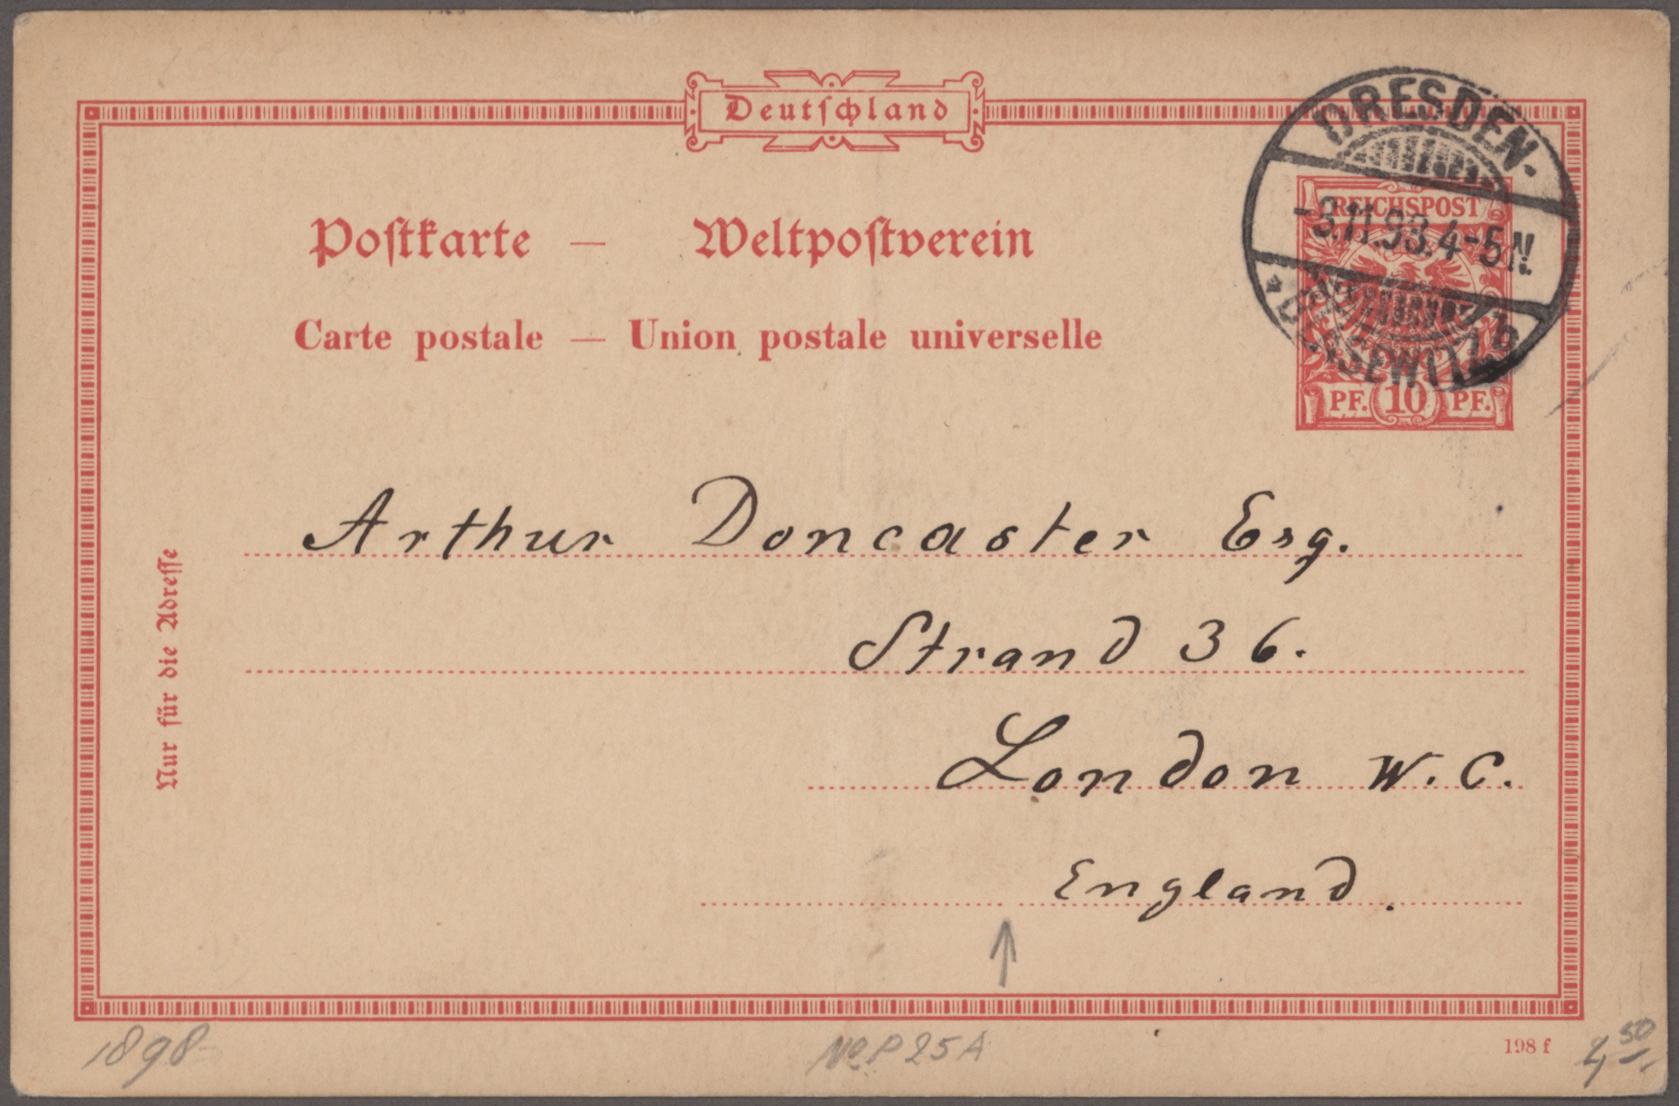 Deutschland
DRESDEN-
REICHSPOST
-3.11.98.4-5N.
Postkarte — Weltpostverein
*BLASEWITZ b
Carte postale — Union postale universelle
PF. 10 PF.
Arthur Doncaster Esq.
Strand 36.
London W. C.
England.
Nur für die Adresse
1898
No P 25 A
198 f